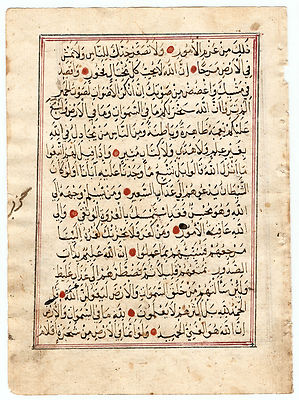 ذَلِكَ مِنْ عَزْمِ الْأُمُورِ وَلَا تُصَعِّرْ خَدَّكَ لِلنَّاسِ وَلَا تَمْشِ
فِي الْأَرْضِ مَرَحًا إِنَّ اللَّهَ لَا يُحِبُّ كُلَّ مُخْتَالٍ فَخُورٍ وَاقْصِدْ
فِي مَشْيِكَ وَاغْضُضْ مِنْ صَوْتِكَ إِنَّ أَنْكَرَ الْأَصْوَاتِ لَصَوْتُ الْحَمِيرِ
أَلَمْ تَرَوْا أَنَّ اللَّهَ سَخَّرَ لَكُمْ مَا فِي السَّمَوَاتِ وَمَا فِي الْأَرْضِ وَأَسْبَغَ
عَلَيْكُمْ نِعَمَهُ ظَاهِرَةً وَبَاطِنَةً وَمِنَ النَّاسِ مَنْ يُجَادِلُ فِي اللَّهِ
بِغَيْرِ عِلْمٍ وَلَا هُدًى وَلَا كِتَابٍ مُنِيرٍ وَإِذَا قِيلَ لَهُمُ اتَّبِعُوا
مَا أَنْزَلَ اللَّهُ قَالُوا بَلْ نَتَّبِعُ مَا وَجَدْنَا عَلَيْهِ آبَاءَنَا أَوَلَوْ كَانَ
الشَّيْطَانُ يَدْعُوهُمْ إِلَى عَذَابِ السَّعِيرِ وَمَنْ يُسْلِمْ وَجْهَهُ إِلَى
اللَّهِ وَهُوَ مُحْسِنٌ فَقَدِ اسْتَمْسَكَ بِالْعُرْوَةِ الْوُثْقَى وَإِلَى
اللَّهِ عَاقِبَةُ الْأُمُورِ وَمَنْ كَفَرَ فَلَا يَحْزُنْكَ كُفْرُهُ إِلَيْنَا
مَرْجِعُهُمْ فَنُنَبِّئُهُمْ بِمَا عَمِلُوا إِنَّ اللَّهَ عَلِيمٌ بِذَاتِ
الصُّدُورِ نُمَتِّعُهُمْ قَلِيلًا ثُمَّ نَضْطَرُّهُمْ إِلَى عَذَابٍ غَلِيظٍ
وَلَئِنْ سَأَلْتَهُمْ مَنْ خَلَقَ السَّمَوَاتِ وَالْأَرْضَ لَيَقُولُنَّ اللَّهُ قُلِ
الْحَمْدُ لِلَّهِ بَلْ أَكْثَرُهُمْ لَا يَعْلَمُونَ لِلَّهِ مَا فِي السَّمَوَاتِ وَالْأَرْضِ
إِنَّ اللَّهَ هُوَ الْغَنِيُّ الْحَمِيدُ وَلَوْ أَنَّمَا فِي الْأَرْضِ مِنْ شَجَرَةٍ أَقْلَامٌ